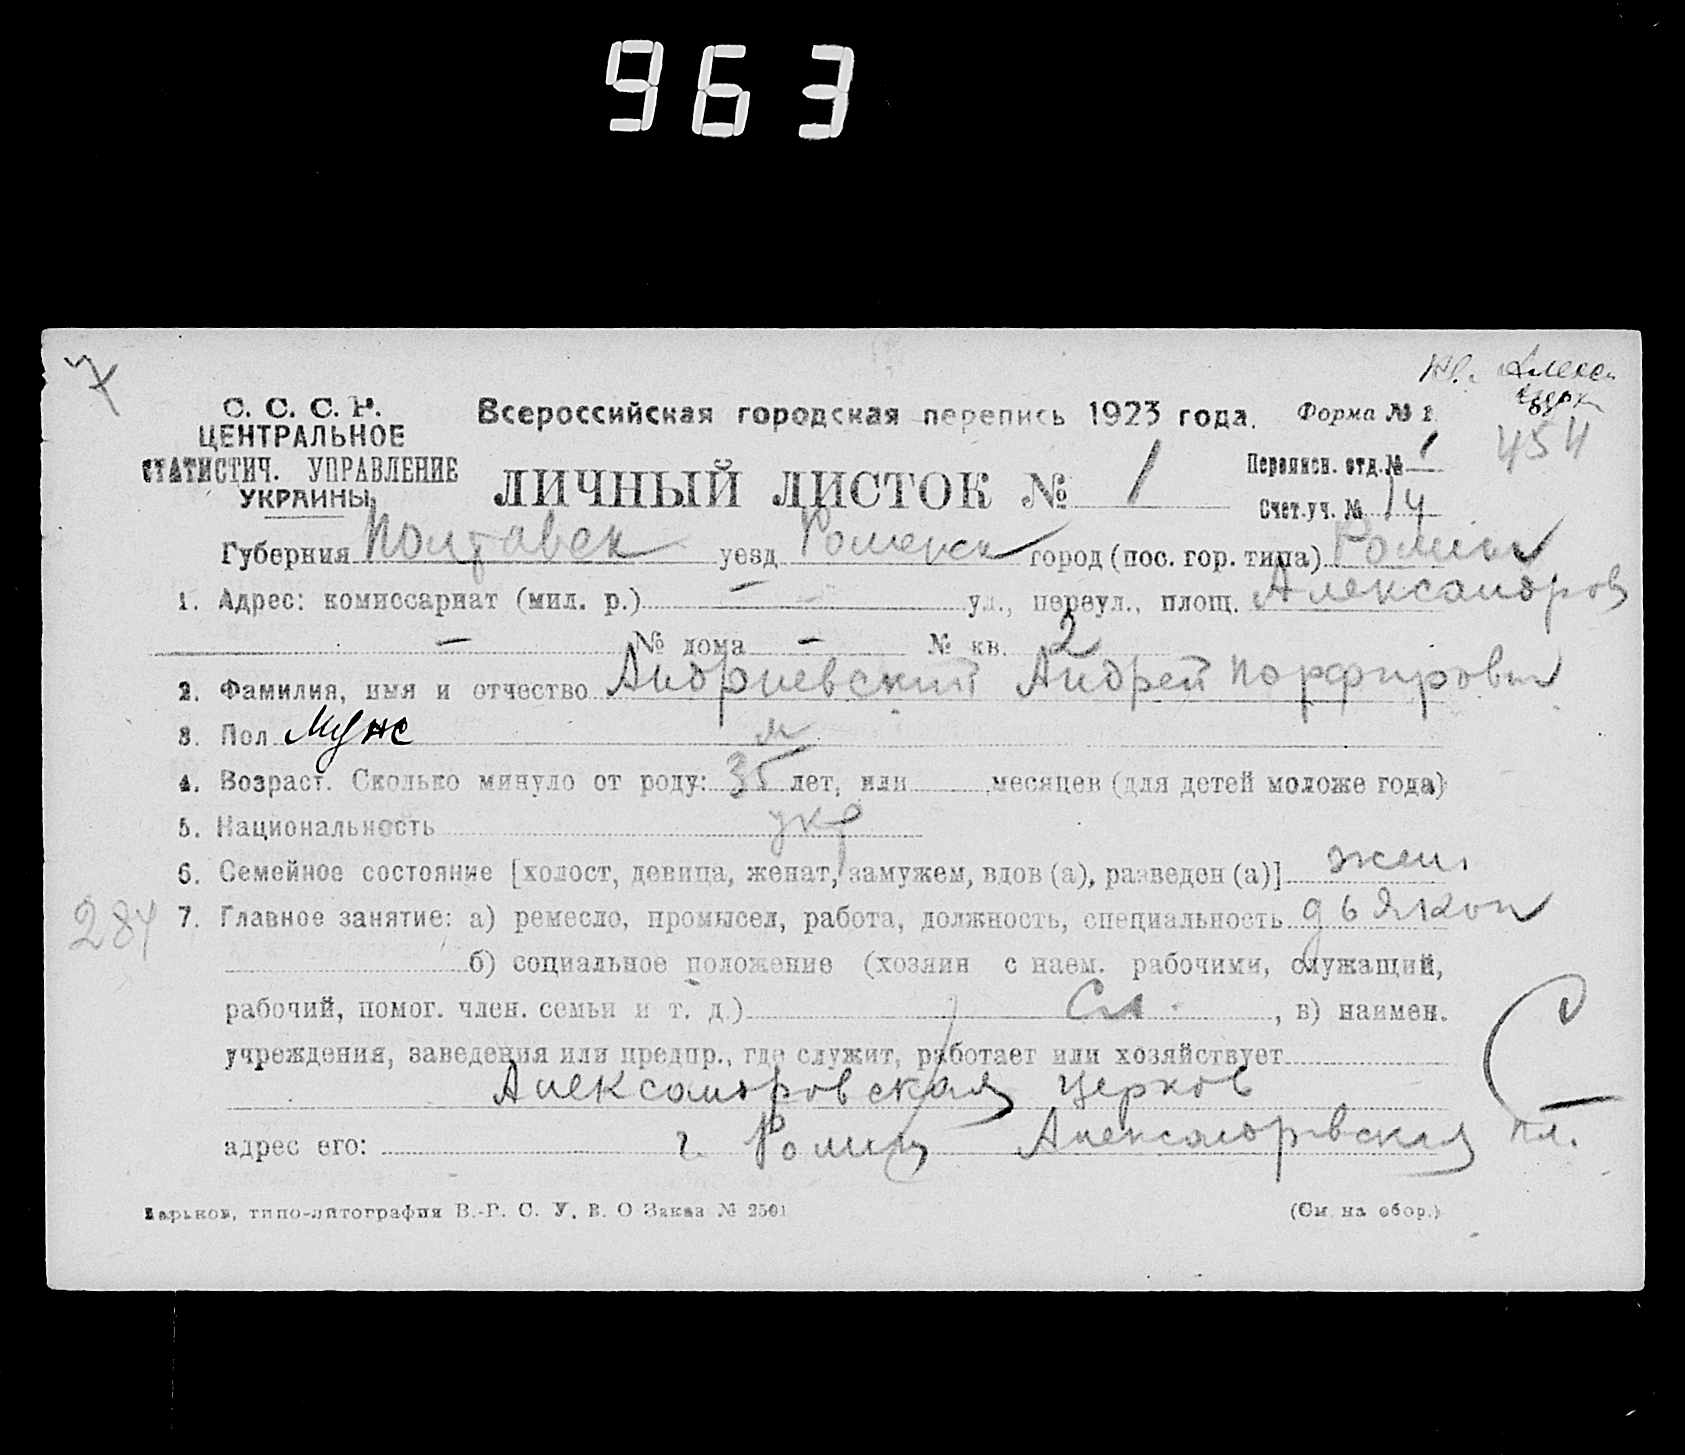 963
7
Кв. Алекса
церк
454
С. С. С. Р.
ЦЕНТРАЛЬНОЕ
СТАТИСТИЧ. УПРАВЛЕНИЕ
УКРАИНЫ
Всероссийская городская перепись 1923 года.
Форма № 1
ЛИЧНЫЙ ЛИСТОК № 1
Переписн. отд. № 1
Счет. уч. № 14
Губерния Полтавск уезд Роменск город (пос. гор. типа) Ромны
1. Адрес: комиссариат (мил. р.) — ул., переул., площ. Александров
— № дома — № кв. 2
2. Фамилия, имя и отчество Андриевский Андрей Порфирович
3. Пол Муж м
4. Возраст. Сколько минуло от роду: 35 лет, или месяцев (для детей моложе года)
5. Национальность укр
6. Семейное состояние [холост, девица, женат, замужем, вдов (а), разведен (а)] жен.
284
7. Главное занятие: а) ремесло, промысел, работа, должность, специальность дьякон
б) социальное положение (хозяин с наем. рабочими, служащий,
рабочий, помог. член. семьи и т. д.) Сл. , в) наимен.
учреждения, заведения или предпр., где служит, работает или хозяйствует
Александровская церков
адрес его: г. Ромны Александровская пл.
Харьков, типо-литография В.-Р. С. У. В. О Заказ № 2501
(См. на обор.)